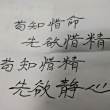 苟知惜命
先欲惜精
苟知惜精
先欲静心